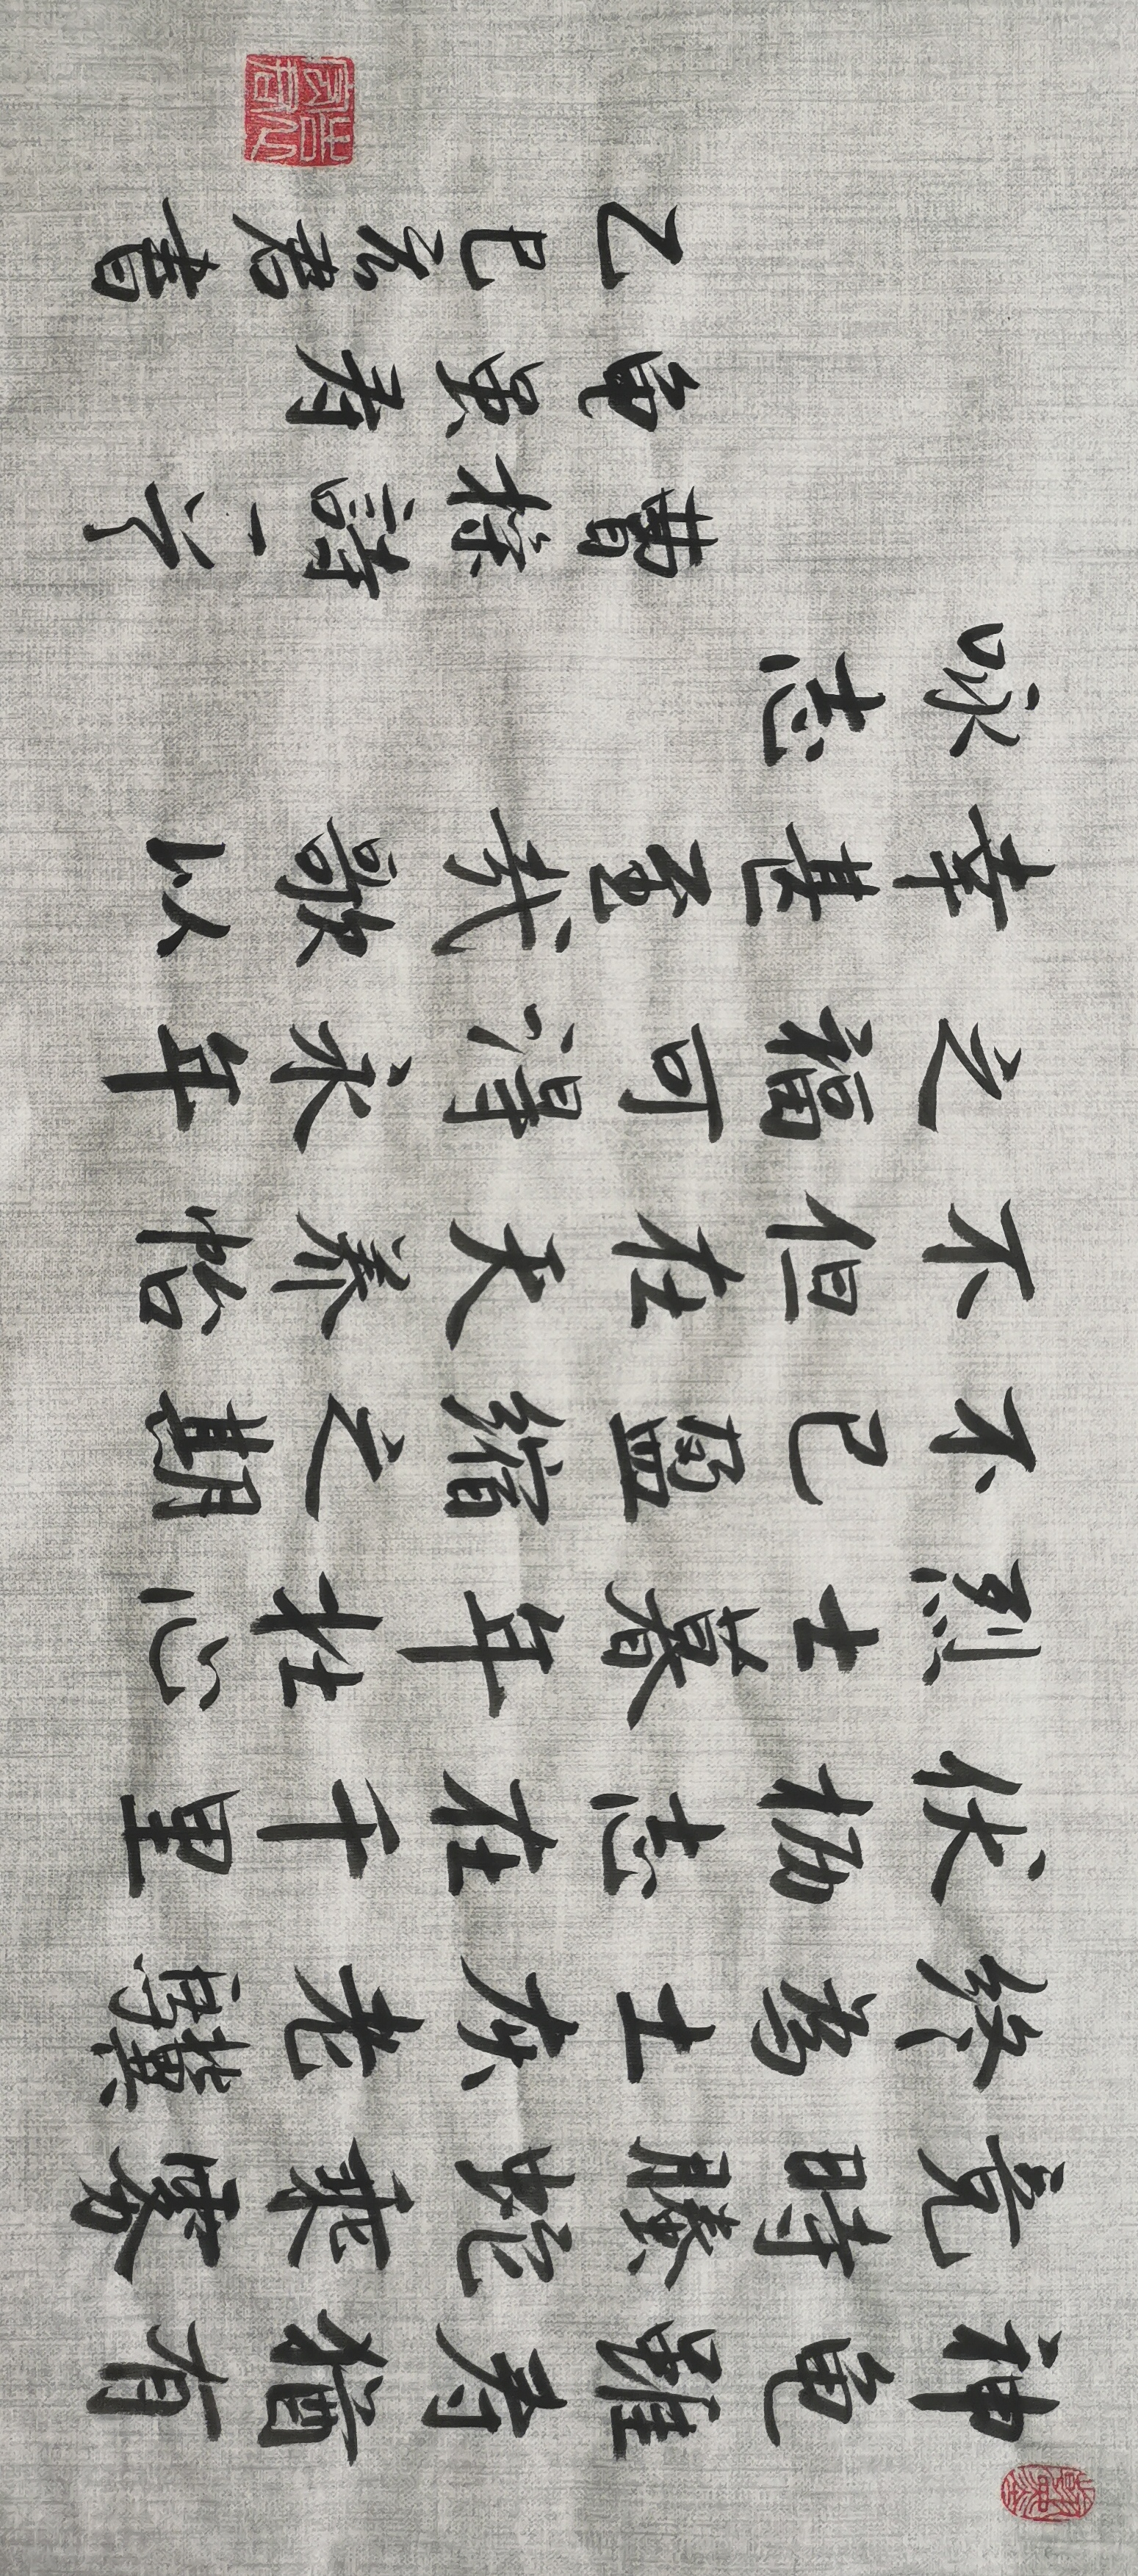 神龟雖壽猶有
竟時騰蛇乘霧
終為土灰老驥
伏枥志在千里
烈士暮年壯心
不已盈縮之期
不但在天養怡
之福可得永年
幸甚至哉歌以
咏志
曹操詩一首
龟雖壽
乙巳君書